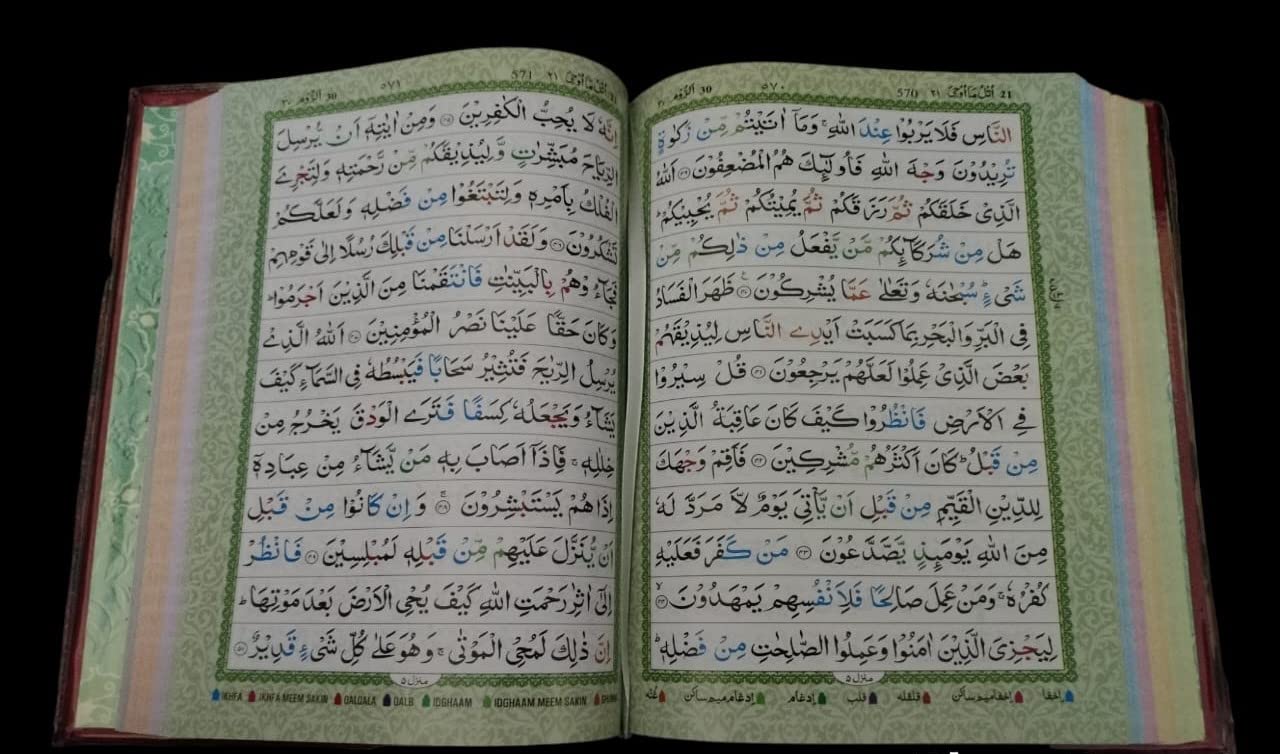 21 اُتْلُ مَآ اُوْحِیَ ٢١ 570
٥٧٠
30 اَلرُّوْم ٣٠
النَّاسِ فَلَا يَرْبُوْا عِنْدَ اللّٰهِ ۚ وَمَآ اٰتَيْتُمْ مِّنْ زَكٰوةٍ
تُرِيْدُوْنَ وَجْهَ اللّٰهِ فَاُولٰٓئِكَ هُمُ الْمُضْعِفُوْنَ ﴿٣٩﴾ اَللّٰهُ
الَّذِىْ خَلَقَكُمْ ثُمَّ رَزَقَكُمْ ثُمَّ يُمِيْتُكُمْ ثُمَّ يُحْيِيْكُمْ ؕ
هَلْ مِنْ شُرَكَآئِكُمْ مَّنْ يَّفْعَلُ مِنْ ذٰلِكُمْ مِّنْ
شَىْءٍ ؕ سُبْحٰنَهٗ وَتَعٰلٰى عَمَّا يُشْرِكُوْنَ ﴿٤٠﴾ ظَهَرَ الْفَسَادُ
فِى الْبَرِّ وَالْبَحْرِ بِمَا كَسَبَتْ اَيْدِى النَّاسِ لِيُذِيْقَهُمْ
بَعْضَ الَّذِىْ عَمِلُوْا لَعَلَّهُمْ يَرْجِعُوْنَ ﴿٤١﴾ قُلْ سِيْرُوْا
فِى الْاَرْضِ فَانْظُرُوْا كَيْفَ كَانَ عَاقِبَةُ الَّذِيْنَ
مِنْ قَبْلُ ؕ كَانَ اَكْثَرُهُمْ مُّشْرِكِيْنَ ﴿٤٢﴾ فَاَقِمْ وَجْهَكَ
لِلدِّيْنِ الْقَيِّمِ مِنْ قَبْلِ اَنْ يَّاْتِىَ يَوْمٌ لَّا مَرَدَّ لَهٗ
مِنَ اللّٰهِ يَوْمَئِذٍ يَّصَّدَّعُوْنَ ﴿٤٣﴾ مَنْ كَفَرَ فَعَلَيْهِ
كُفْرُهٗ ۚ وَمَنْ عَمِلَ صَالِحًا فَلِاَنْفُسِهِمْ يَمْهَدُوْنَ ﴿٤٤﴾
لِيَجْزِىَ الَّذِيْنَ اٰمَنُوْا وَعَمِلُوا الصّٰلِحٰتِ مِنْ فَضْلِهٖ ؕ
منزل ٥
إخفا إخفا ميم ساكن قلقله قلب إدغام إدغام ميم ساكن غنه
اُتْلُ مَآ اُوْحِیَ ٢١ 571
٥٧١
30 اَلرُّوْم ٣٠
اِنَّهٗ لَا يُحِبُّ الْكٰفِرِيْنَ ﴿٤٥﴾ وَمِنْ اٰيٰتِهٖٓ اَنْ يُّرْسِلَ
الرِّيَاحَ مُبَشِّرٰتٍ وَّلِيُذِيْقَكُمْ مِّنْ رَّحْمَتِهٖ وَلِتَجْرِىَ
الْفُلْكُ بِاَمْرِهٖ وَلِتَبْتَغُوْا مِنْ فَضْلِهٖ وَلَعَلَّكُمْ
تَشْكُرُوْنَ ﴿٤٦﴾ وَلَقَدْ اَرْسَلْنَا مِنْ قَبْلِكَ رُسُلًا اِلٰى قَوْمِهِمْ
فَجَآءُوْهُمْ بِالْبَيِّنٰتِ فَانْتَقَمْنَا مِنَ الَّذِيْنَ اَجْرَمُوْا ؕ
وَكَانَ حَقًّا عَلَيْنَا نَصْرُ الْمُؤْمِنِيْنَ ﴿٤٧﴾ اَللّٰهُ الَّذِىْ
يُرْسِلُ الرِّيٰحَ فَتُثِيْرُ سَحَابًا فَيَبْسُطُهٗ فِى السَّمَآءِ كَيْفَ
يَشَآءُ وَيَجْعَلُهٗ كِسَفًا فَتَرَى الْوَدْقَ يَخْرُجُ مِنْ
خِلٰلِهٖ ۚ فَاِذَآ اَصَابَ بِهٖ مَنْ يَّشَآءُ مِنْ عِبَادِهٖٓ
اِذَا هُمْ يَسْتَبْشِرُوْنَ ﴿٤٨﴾ وَاِنْ كَانُوْا مِنْ قَبْلِ
اَنْ يُّنَزَّلَ عَلَيْهِمْ مِّنْ قَبْلِهٖ لَمُبْلِسِيْنَ ﴿٤٩﴾ فَانْظُرْ
اِلٰٓى اٰثٰرِ رَحْمَتِ اللّٰهِ كَيْفَ يُحْىِ الْاَرْضَ بَعْدَ مَوْتِهَا ؕ
اِنَّ ذٰلِكَ لَمُحْىِ الْمَوْتٰى ۚ وَهُوَ عَلٰى كُلِّ شَىْءٍ قَدِيْرٌ ﴿٥٠﴾
منزل ٥
IKHFA IKHFA MEEM SAKIN QALQALA QALB IDGHAAM IDGHAAM MEEM SAKIN